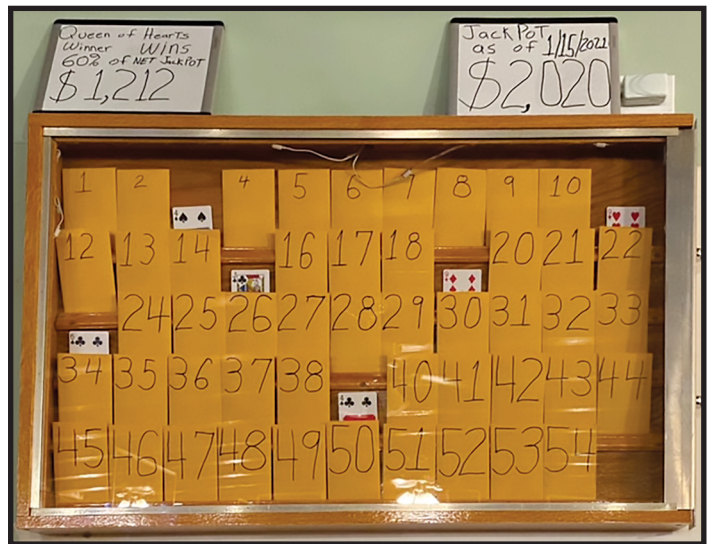 Queen of Hearts
Winner Wins
60% of NET JackPOT
$1,212
JackPOT
as of 1/15/2021
$2,020
1 2 4 5 6 7 8 9 10
12 13 14 16 17 18 20 21 22
24 25 26 27 28 29 30 31 32 33
34 35 36 37 38 40 41 42 43 44
45 46 47 48 49 50 51 52 53 54